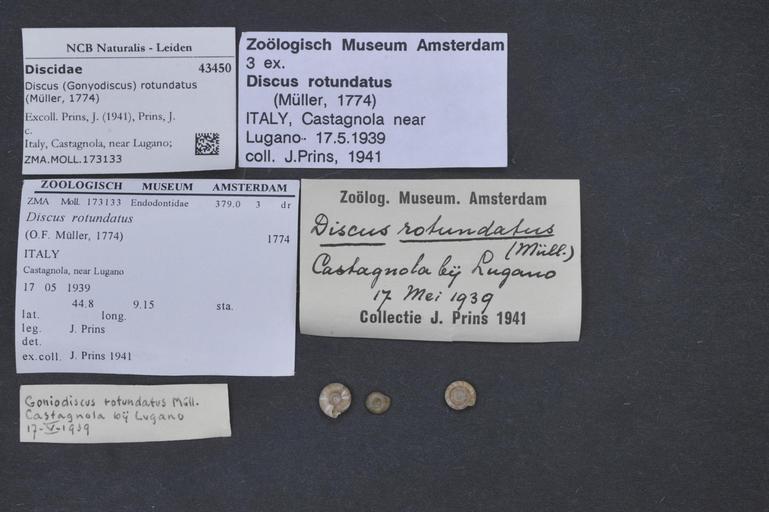 NCB Naturalis - Leiden
Discidae 43450
Discus (Gonyodiscus) rotundatus
(Müller, 1774)
Excoll. Prins, J. (1941), Prins, J.
c.
Italy, Castagnola, near Lugano;
ZMA.MOLL.173133
Zoölogisch Museum Amsterdam
3 ex.
Discus rotundatus
(Müller, 1774)
ITALY, Castagnola near
Lugano·· 17.5.1939
coll. J.Prins, 1941
ZOOLOGISCH MUSEUM AMSTERDAM
ZMA Moll. 173133 Endodontidae 379.0 3 dr
Discus rotundatus
(O.F. Müller, 1774) 1774
ITALY
Castagnola, near Lugano
17 05 1939
44.8 9.15 sta.
lat. long.
leg. J. Prins
det.
ex.coll. J. Prins 1941
Zoölog. Museum. Amsterdam
Discus rotundatus
(Müll.)
Castagnola bij Lugano
17 Mei 1939
Collectie J. Prins 1941
Goniodiscus rotundatus Müll.
Castagnola bij Lugano
17-V-1939